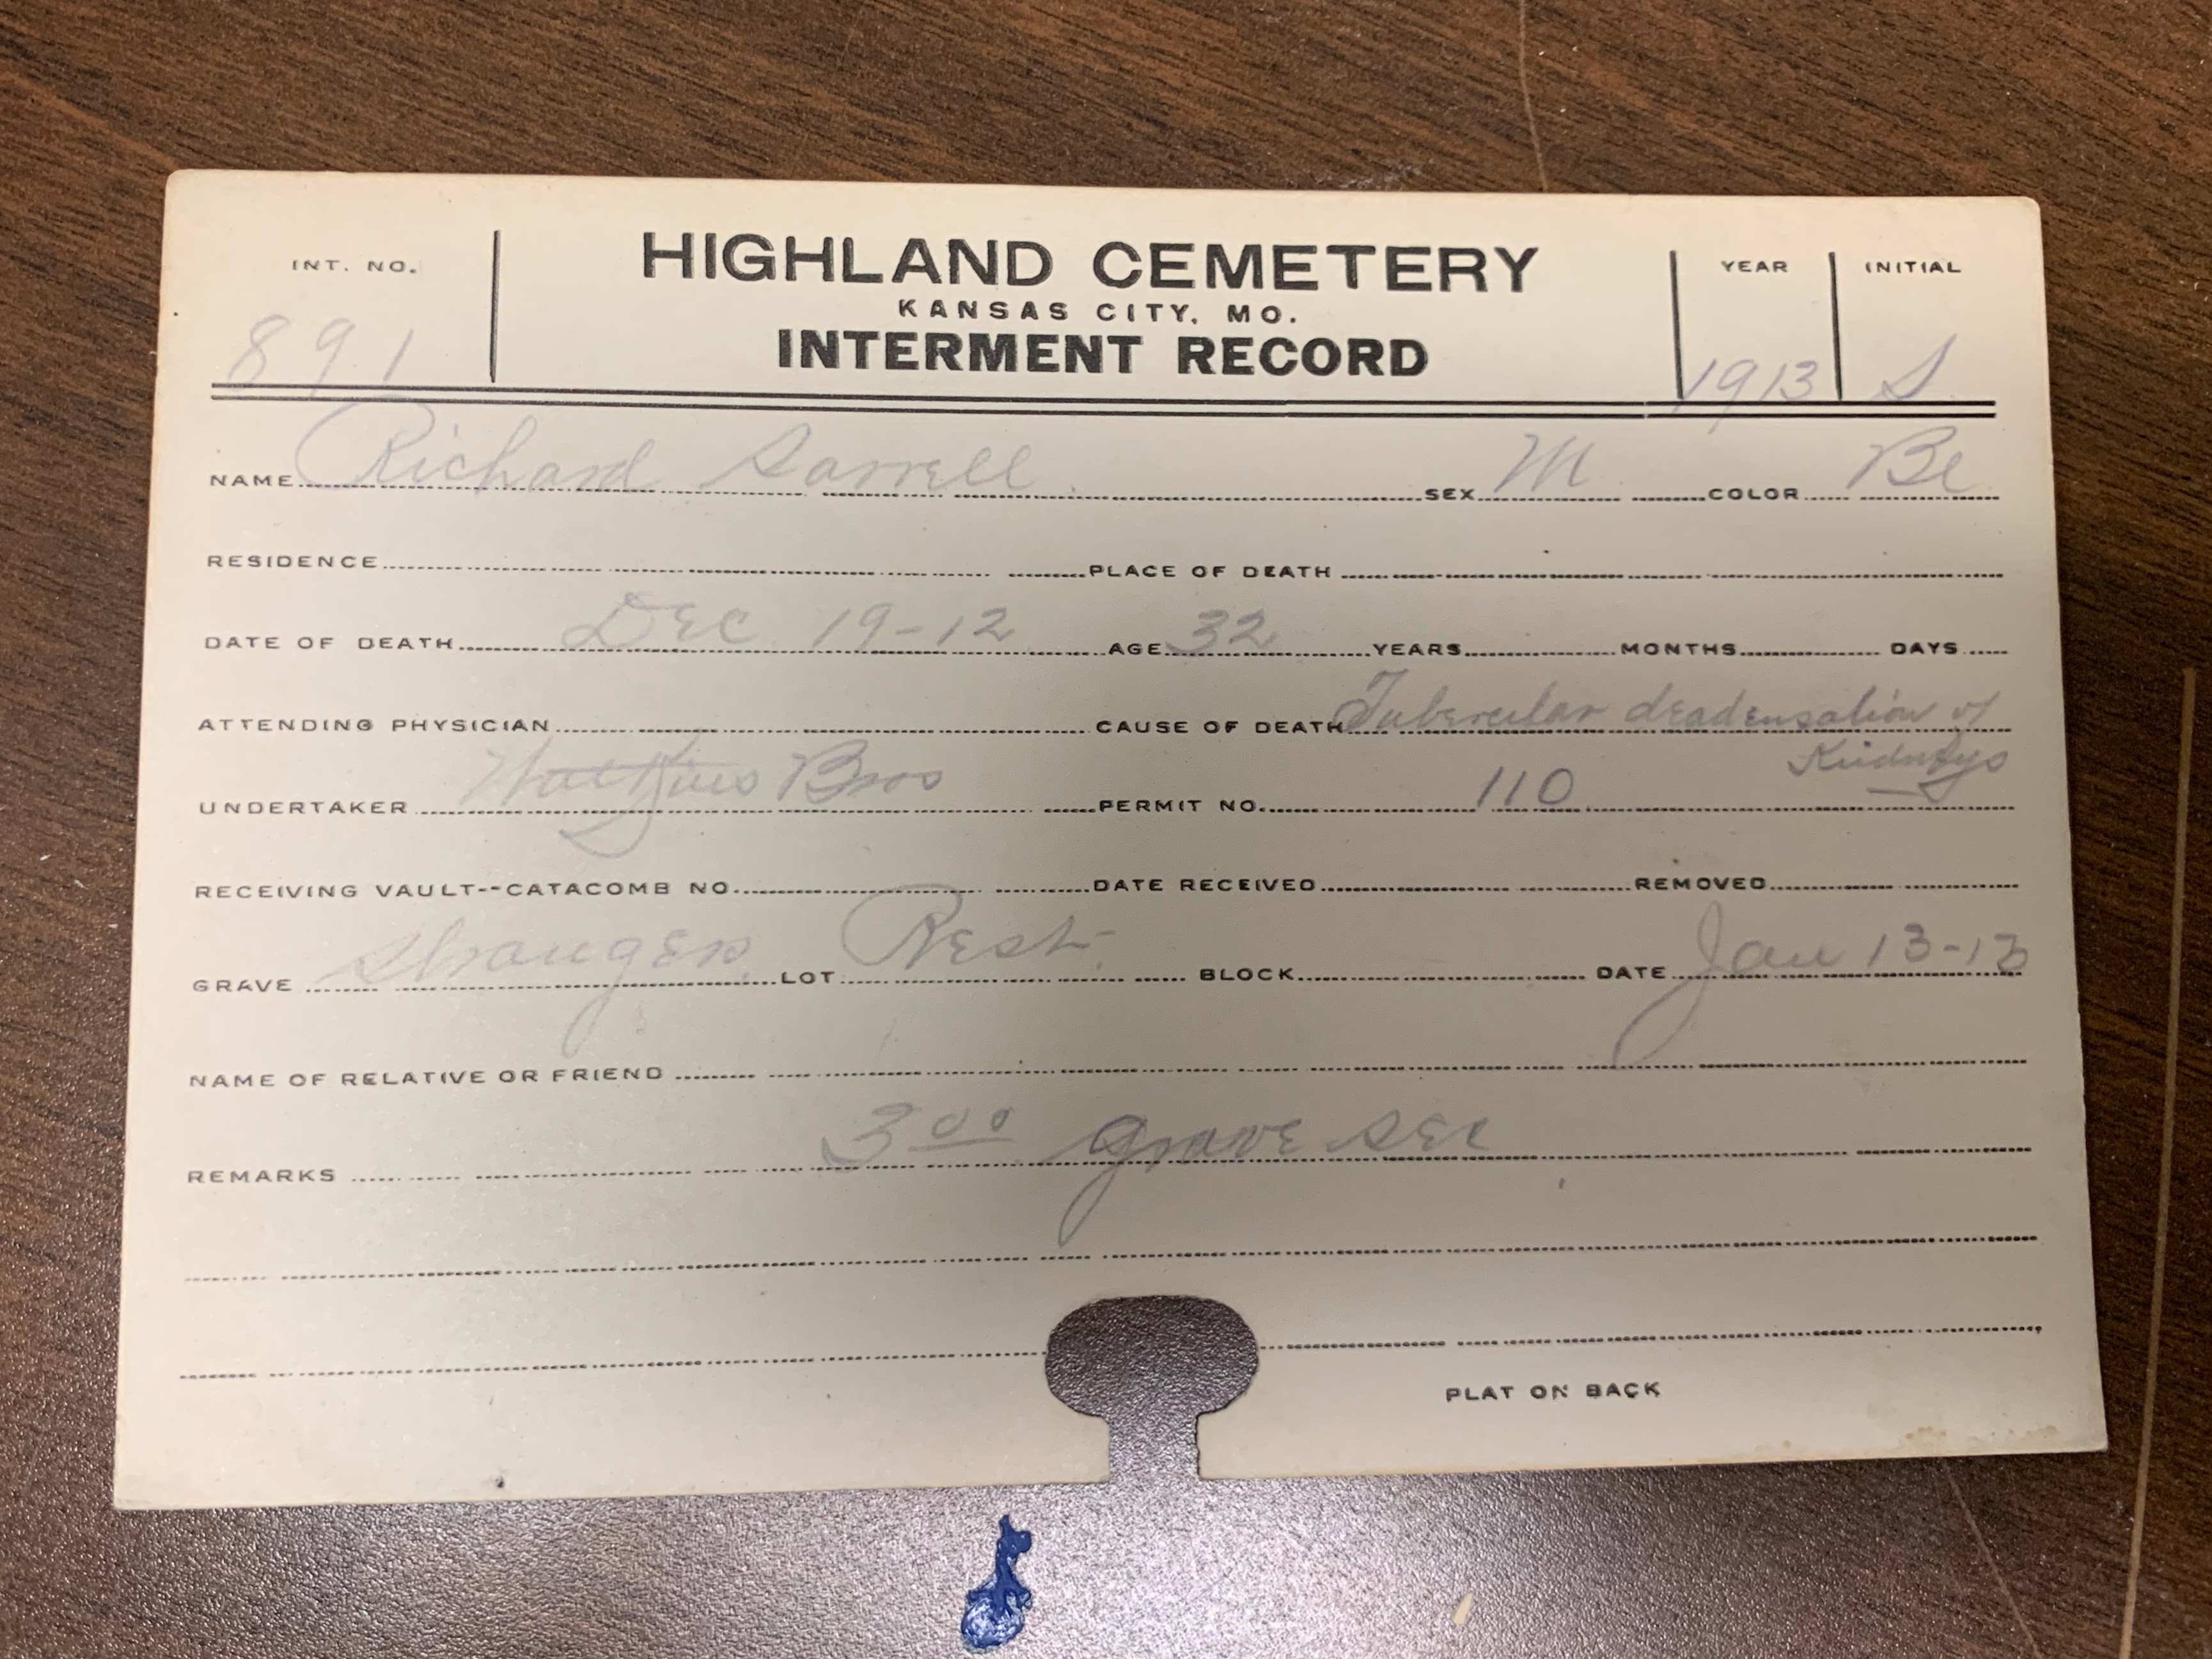 INT. NO. HIGHLAND CEMETERY YEAR INITIAL
KANSAS CITY, MO.
891 INTERMENT RECORD 1913 S
NAME Richard Sarrell SEX M COLOR Bl
RESIDENCE PLACE OF DEATH
DATE OF DEATH Dec 19-12 AGE 32 YEARS MONTHS DAYS
ATTENDING PHYSICIAN CAUSE OF DEATH Tubercular of
Kidneys
UNDERTAKER Watkins Bros PERMIT NO. 110
RECEIVING VAULT--CATACOMB NO. DATE RECEIVED REMOVED
GRAVE Strangers LOT Rest BLOCK DATE Jan 13-13
NAME OF RELATIVE OR FRIEND
REMARKS 3 00 grave sec
PLAT ON BACK